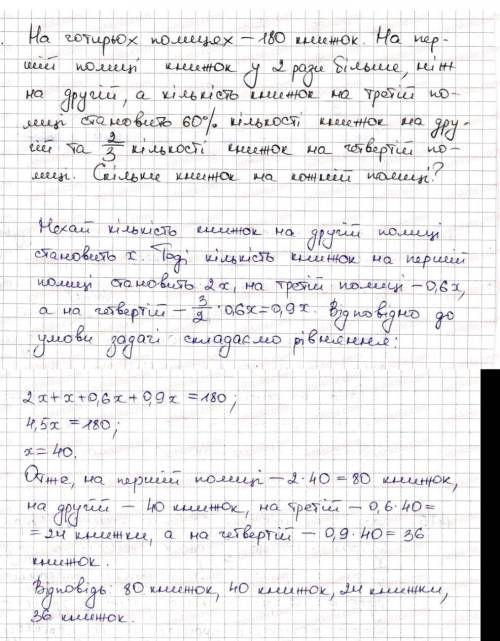 На чотирьох полицях – 180 книжок. На пер-
шій полиці книжок у 2 рази більше, ніж
на другій, а кількість книжок на третій по-
лиці становить 60% кількості книжок на дру-
гій та 2/3 кількості книжок на четвертій по-
лиці. Скільки книжок на кожній полиці?
Нехай кількість книжок на другій полиці
становить x. Тоді кількість книжок на першій
полиці становить 2x, на третій полиці – 0,6x,
а на четвертій – 3/2 · 0,6x = 0,9x. Відповідно до
умови задачі складаємо рівняння:
2x + x + 0,6x + 0,9x = 180;
4,5x = 180;
x = 40.
Отже, на першій полиці – 2·40 = 80 книжок,
на другій – 40 книжок, на третій – 0,6·40 =
= 24 книжки, а на четвертій – 0,9·40 = 36
книжок.
Відповідь: 80 книжок, 40 книжок, 24 книжки,
36 книжок.